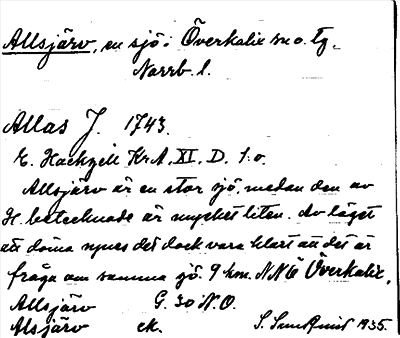 Allsjärv, en sjö i Överkalix sn o. tg.
Norrb. l.
Allas J. 1743.
E. Hackzell KrA. XI. D. 1:o.
Allsjärv är en stor sjö, medan den av
H. betecknade är mycket liten. Av läget
att döma synes det dock vara klart att det är
fråga om samma sjö. 9 km. NNÖ Överkalix.
Allsjärv G. 30 N.O.
Alsjärv ek. S. Sundqvist 1935.